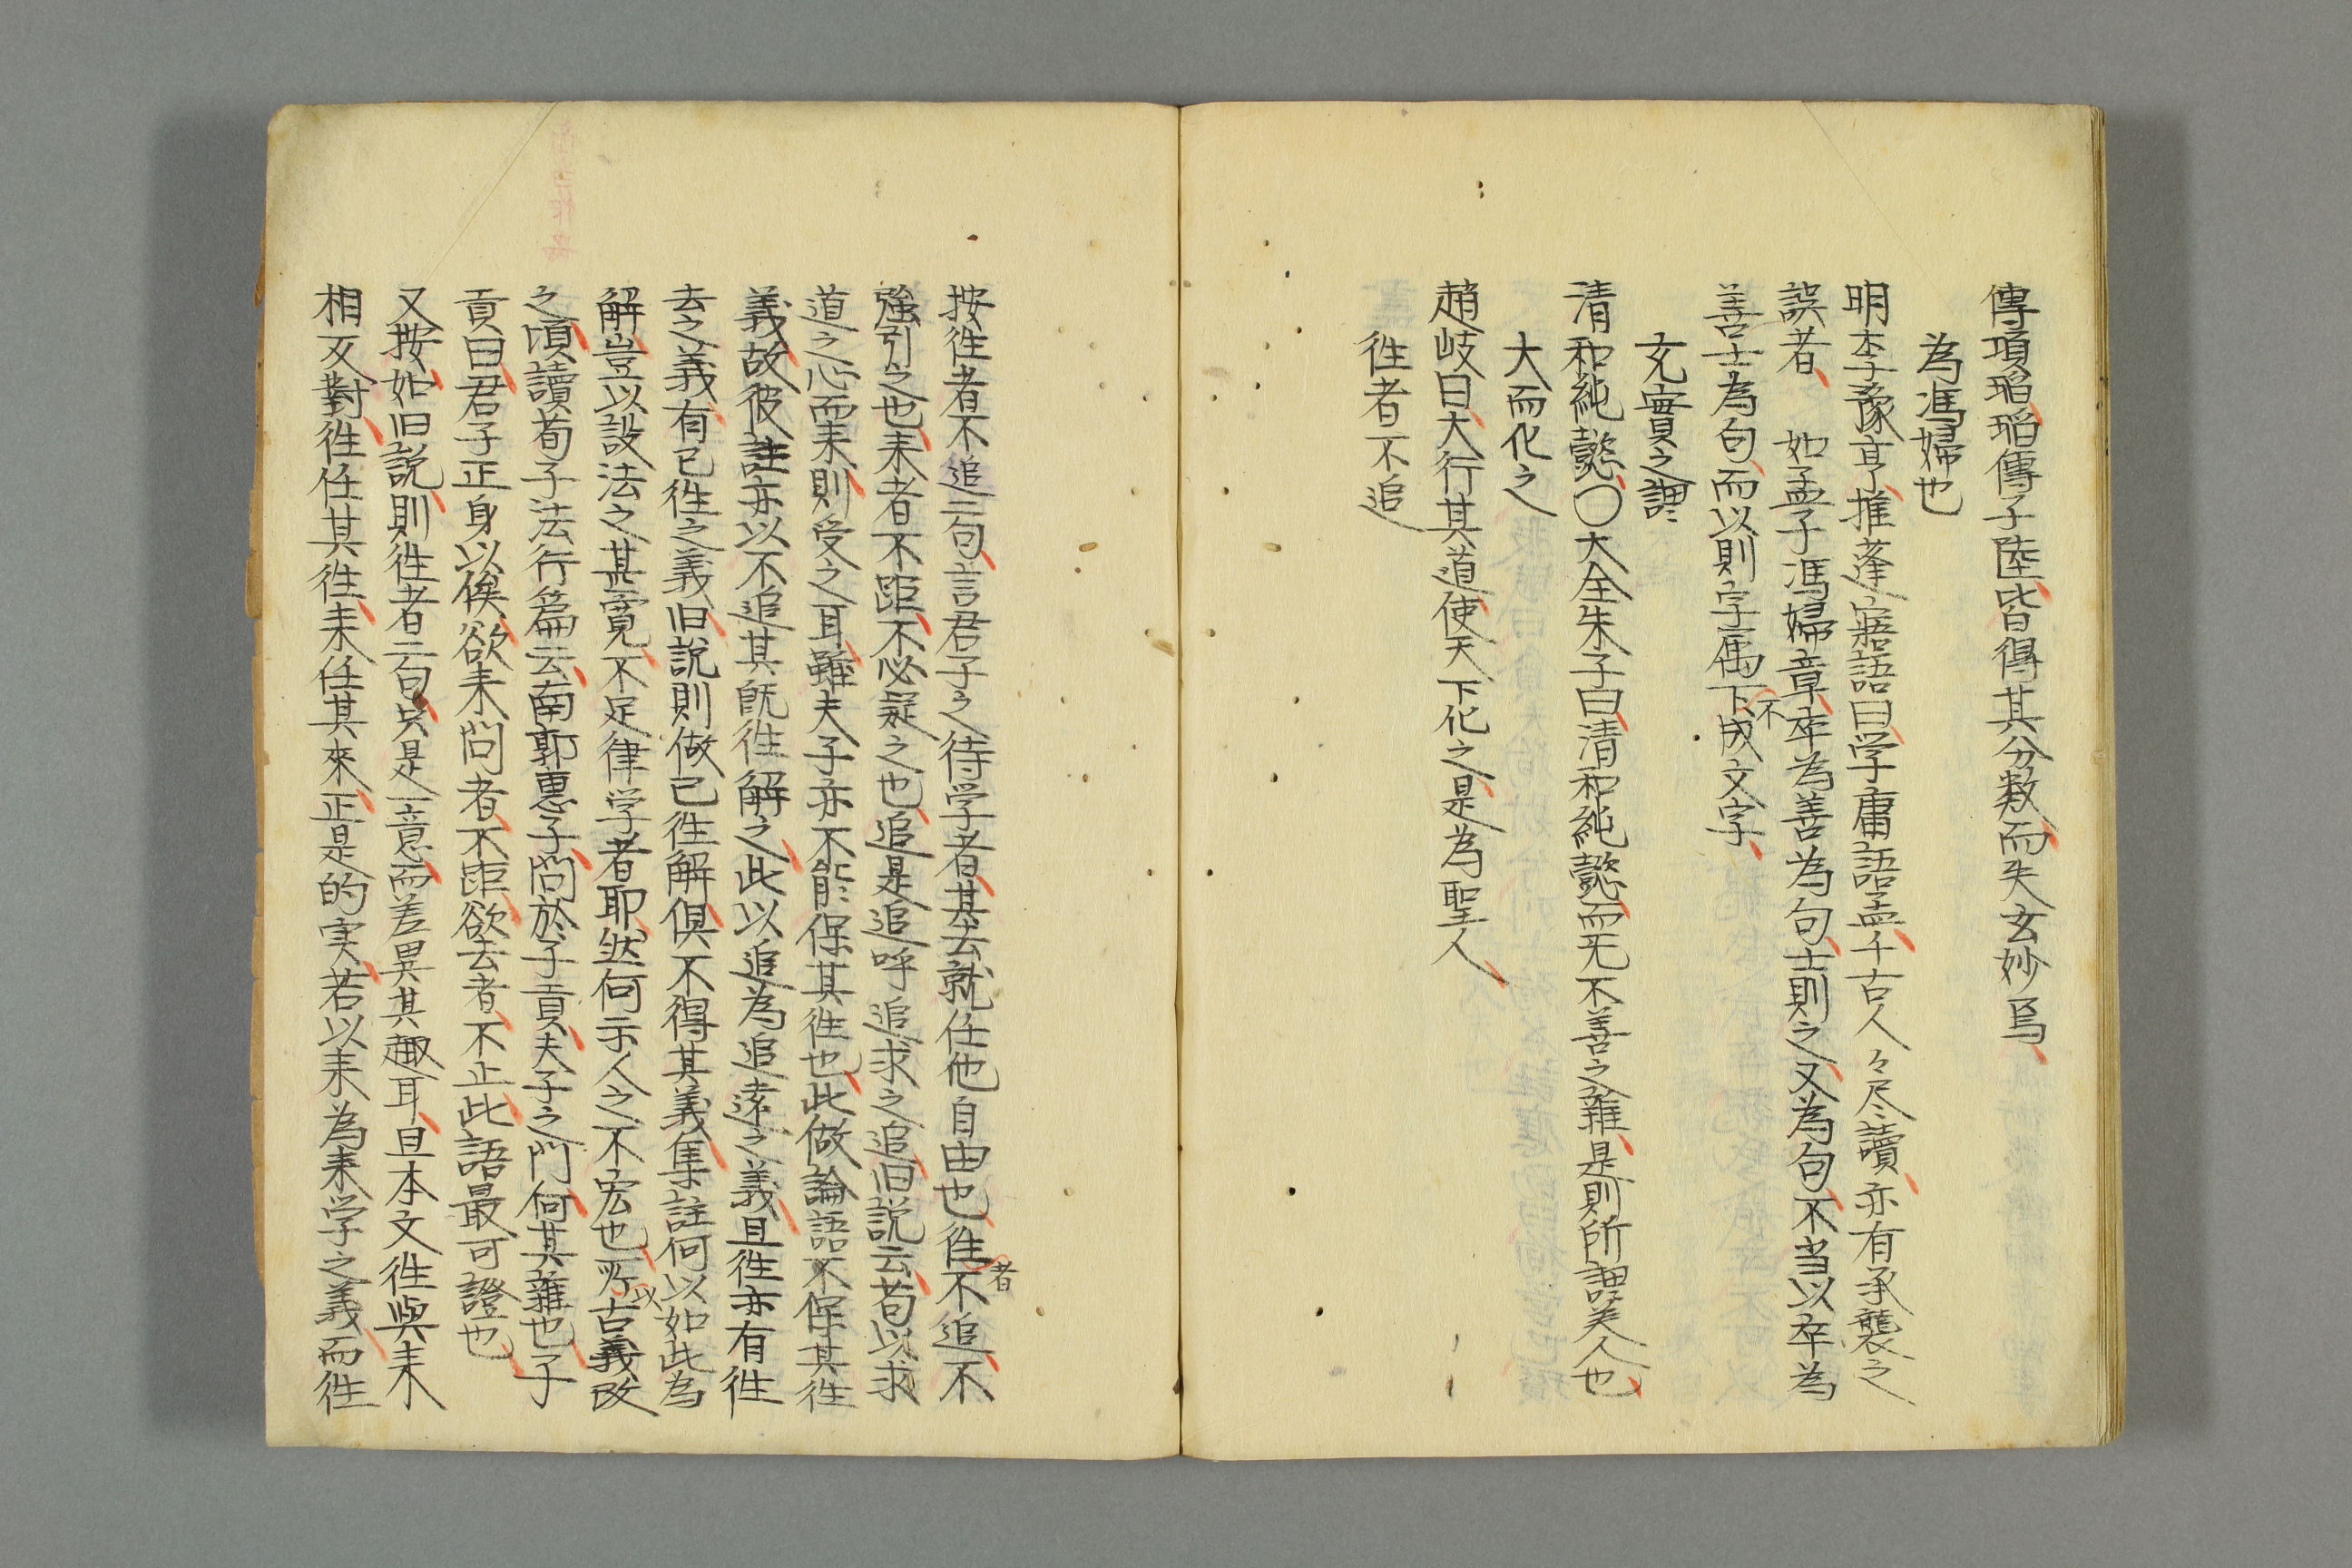 傳項瑫瑫傳子陸皆得其分数而失玄妙焉
為馮婦也
明李豫亨推蓬寤語曰学庸語孟千古人々尽讀亦有承襲之
誤者如孟子馮婦章卒為善為句士則之又為句不当以卒為
善士為句而以則字属下不成文字
充實之謂
清和純懿〇大全朱子曰清和純懿而无不善之雜是則所謂美人也
大而化之
趙岐曰大行其道使天下化之是為聖人
徃者不追
按徃者不追二句言君子之待学者其去就任他自由也徃者不追不
強引之也来者不距不必疑之也追是追呼追求之追旧説云苟以求
道之心而来則受之耳雖夫子亦不能保其徃也此做論語不保其徃
義故彼註亦以不追其既徃解之此以追為追逺之義且徃亦有徃
去之義有已徃之義旧説則做已徃解倶不得其義集註何以如此為
解豈以設法之甚寛不足律学者耶然何示人之不宏也所以古義改
之頃讀荀子法行篇云南郭惠子問於子貢夫子之門何其雜也子
貢曰君子正身以俟欲来問者不距欲去者不止此語最可證也
又按如旧説則徃者二句只是一意而差異其趣耳且本文徃與来
相反對徃任其徃来任其來正是的実若以来為来学之義而徃